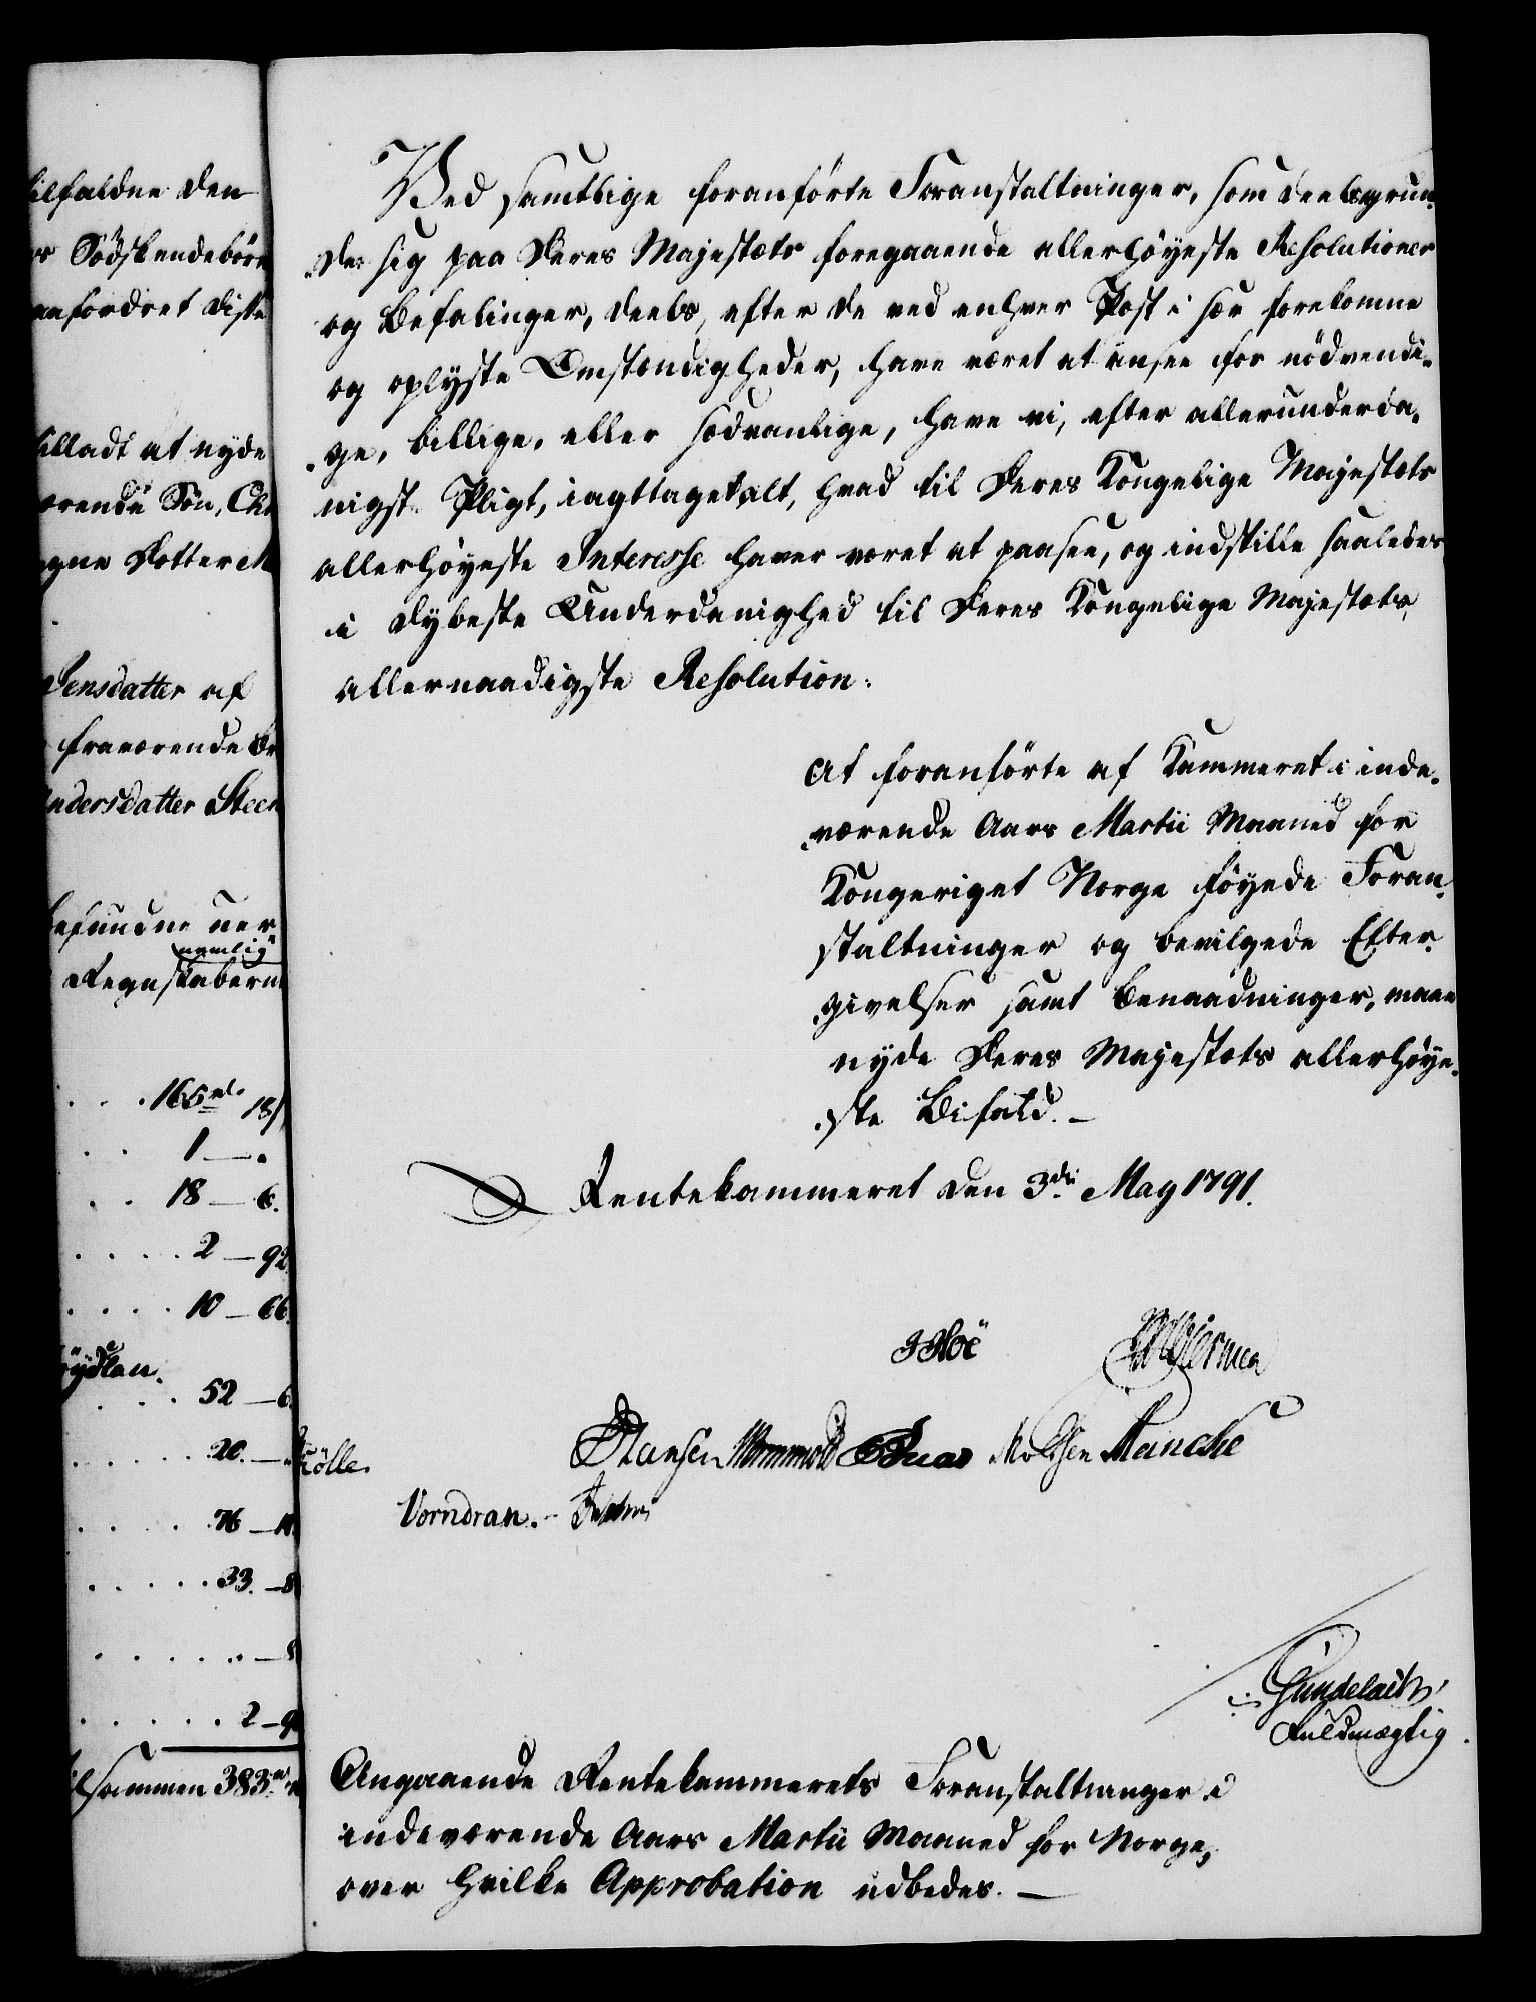 tilfaldne den
Södskendebörn
anfordret diste
tilladt at nyde
Sön, Chr
Dotter M
Jensdatter af
fraværende
ndersdatter Steen
befundne
nemlig
Regnskaberne
165 rd. 18
1 —
18 — 6.
2 — 92
10 — 66
52 — 6
20. —
76 —
33. — 8
— 8
2 — 9
Tilsammen 383 rd.
Ved samtlige foranförte Foranstaltninger, som deels grun-
de sig paa Deres Majestæts foregaaende allerhöyeste Resolutioner
og Befalinger, deels, efter de ved enhver Post i sær forekomne
og oplyste Omstændigheder, have været at ansee for nödvendi-
ge, billige, eller sædvanlige, have vi, efter allerunderda-
nigst Pligt, iagttaget alt, hvad til Deres Kongelige Majestæts
allerhöyeste Interesse haver været at paasee, og indstille saaledes
i dybeste Underdanighed til Deres Kongelige Majestæts
allernaadigste Resolution:
At foranförte af Kammeret i inde-
værende Aars Martii Maaned for
Kongeriget Norge föyede Foran-
staltninger og bevilgede Efter-
givelser samt Benaadninger, maae
nyde Deres Majestæts allerhöye-
ste Bifald. —
Rentekammeret den 3die May 1791.
J Hoë
Hansen Wormwold Mølsen Manche
Kölle.
Vorndran.
Gundelach,
Fuldmægtig.
Angaaende Rentekammerets Foranstaltninger i
indeværende Aars Martii Maaned for Norge,
over hvilke Approbation udbedes. —